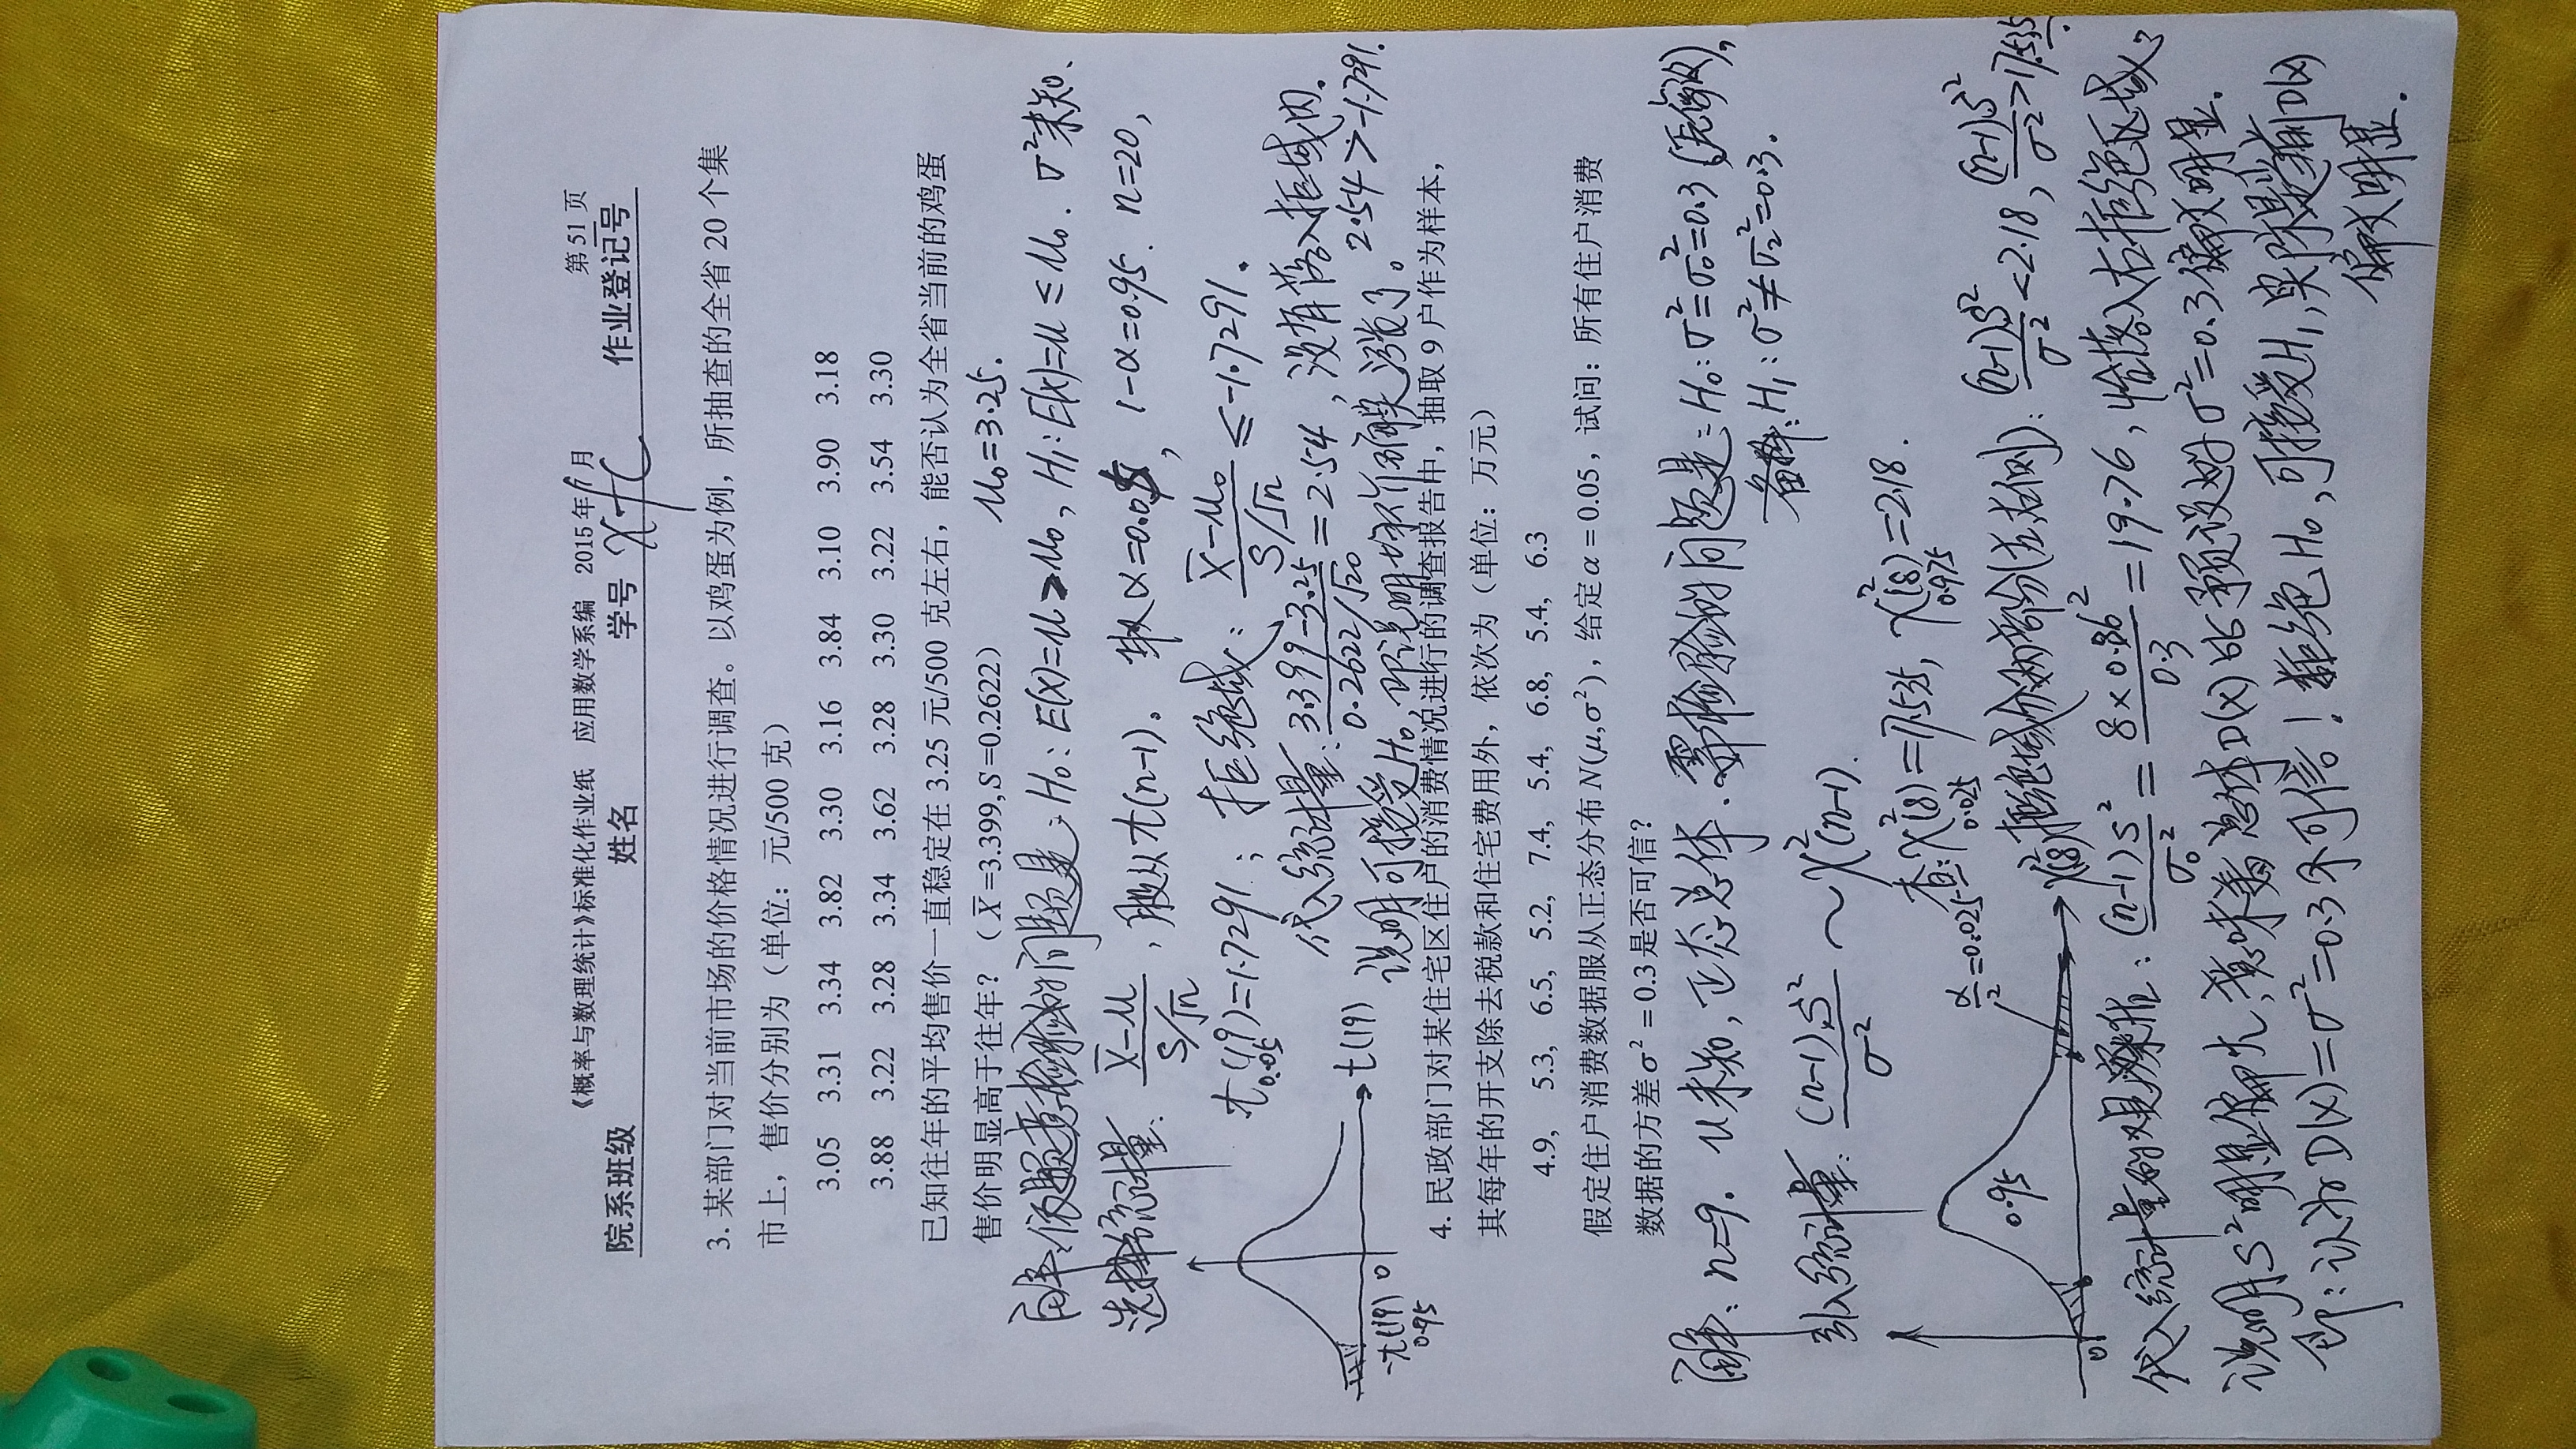 《概率与数理统计》标准化作业纸 应用数学系编 2015年 月 第51页
院系班级 姓名 学号 作业登记号
3. 某部门对当前市场的价格情况进行调查。以鸡蛋为例，所抽查的全省 20 个集
市上，售价分别为（单位：元/500 克）
3.05 3.31 3.34 3.82 3.30 3.16 3.84 3.10 3.90 3.18
3.88 3.22 3.28 3.34 3.62 3.28 3.30 3.22 3.54 3.30
已知往年的平均售价一直稳定在 3.25 元/500 克左右，能否认为全省当前的鸡蛋
售价明显高于往年？（X̄=3.399,S=0.2622） μ₀=3.25.
解：假设检验的问题是：H₀: E(x)=μ≥μ₀, H₁: E(x)=μ≤μ₀. σ²未知、
选择统计量：(X̄-μ)/(S/√n)，服从t(n-1). 取α=0.05, 1-α=0.95. n=20,
t₀.₀₅(19)=1.7291; 拒绝域：(X̄-μ₀)/(S/√n) ≤ -1.7291.
代入统计量：(3.399-3.25)/(0.2622/√20)=2.54, 没有落入拒域内.
说明可接受H₀, 即说明均价确实涨了。 2.54>-1.7291.
-t(19) 0.95 0 t(19)
4. 民政部门对某住宅区住户的消费情况进行的调查报告中，抽取 9 户作为样本，
其每年的开支除去税款和住宅费用外，依次为（单位：万元）
4.9, 5.3, 6.5, 5.2, 7.4, 5.4, 6.8, 5.4, 6.3
假定住户消费数据服从正态分布 N(μ,σ²)，给定α=0.05，试问：所有住户消费
数据的方差σ²=0.3是否可信？
解：n=9. μ未知，正态总体. 需检验的问题是：H₀: σ²=σ₀²=0.3 (无偏大),
备择：H₁: σ²≠σ₂²=0.3.
引入统计量：(n-1)S²/σ² ~ χ²(n-1).
查：χ²₀.₀₂₅(8)=17.535, χ²₀.₉₇₅(8)=2.18.
0 0.95 α/2=0.025 χ²(8)
拒绝域分两部分(左,右侧)：(n-1)S²/σ²<2.18, (n-1)S²/σ²>17.535.
代入统计量的观察值：(n-1)S²/σ₀²=8×0.86²/0.3=19.76, 恰落入右拒绝区域,
说明S²明显偏大, 意味着总体D(x)比预设的σ²=0.3偏大明显.
即：认为D(x)=σ²=0.3不可信！拒绝H₀, 可接受H₁, D(x)
偏大明显.